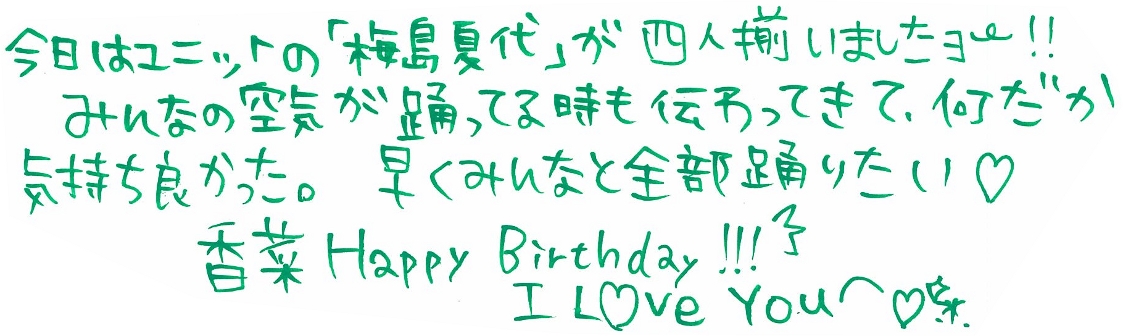 今日はユニットの「梅島夏代」が四人揃いましたョ!!
みんなの空気が踊ってる時も伝わってきて、何だか
気持ち良かった。 早くみんなと全部踊りたい♡
香菜 Happy Birthday !!!
I L♡ve You〜♡